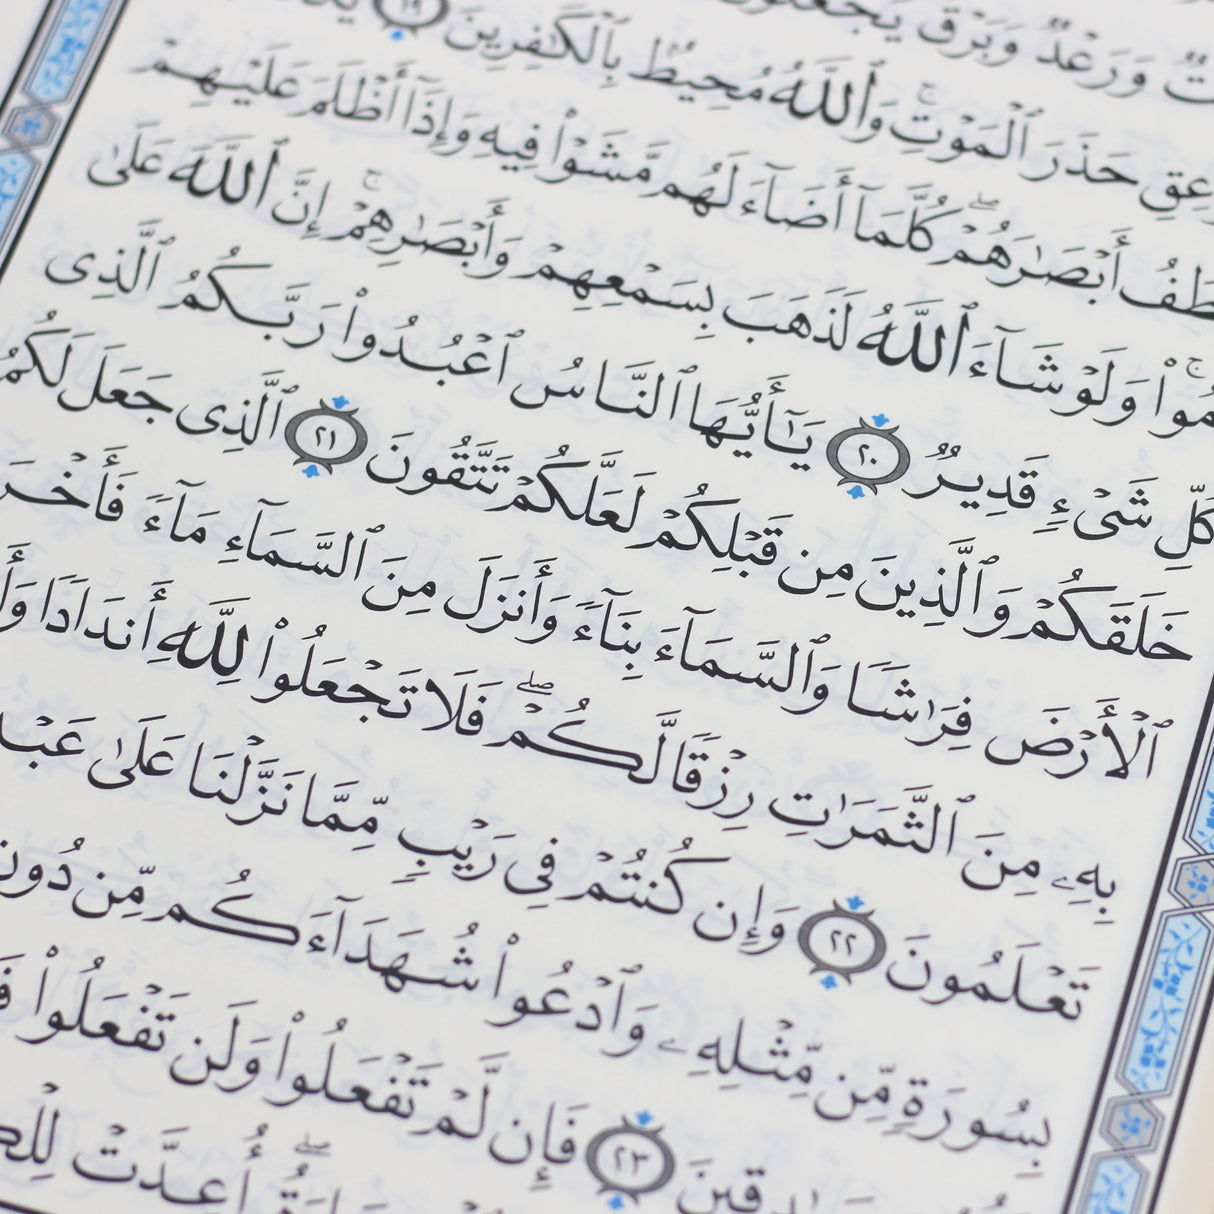 وَرَعْدٌ وَبَرْقٌ يَجْعَلُونَ
حَذَرَ ٱلْمَوْتِ ۚ وَٱللَّهُ مُحِيطٌۢ بِٱلْكَٰفِرِينَ ١٩
أَبْصَٰرَهُمْ ۖ كُلَّمَآ أَضَآءَ لَهُم مَّشَوْا۟ فِيهِ وَإِذَآ أَظْلَمَ عَلَيْهِمْ
وَلَوْ شَآءَ ٱللَّهُ لَذَهَبَ بِسَمْعِهِمْ وَأَبْصَٰرِهِمْ ۚ إِنَّ ٱللَّهَ عَلَىٰ
كُلِّ شَىْءٍ قَدِيرٌ ٢٠ يَٰٓأَيُّهَا ٱلنَّاسُ ٱعْبُدُوا۟ رَبَّكُمُ ٱلَّذِى
خَلَقَكُمْ وَٱلَّذِينَ مِن قَبْلِكُمْ لَعَلَّكُمْ تَتَّقُونَ ٢١ ٱلَّذِى جَعَلَ لَكُمُ
ٱلْأَرْضَ فِرَٰشًا وَٱلسَّمَآءَ بِنَآءً وَأَنزَلَ مِنَ ٱلسَّمَآءِ مَآءً فَأَخْرَ
بِهِۦ مِنَ ٱلثَّمَرَٰتِ رِزْقًا لَّكُمْ ۖ فَلَا تَجْعَلُوا۟ لِلَّهِ أَندَادًا وَأَ
تَعْلَمُونَ ٢٢ وَإِن كُنتُمْ فِى رَيْبٍ مِّمَّا نَزَّلْنَا عَلَىٰ عَبْ
بِسُورَةٍ مِّن مِّثْلِهِۦ وَٱدْعُوا۟ شُهَدَآءَكُم مِّن دُونِ
٢٣ فَإِن لَّمْ تَفْعَلُوا۟ وَلَن تَفْعَلُوا۟
أُعِدَّتْ